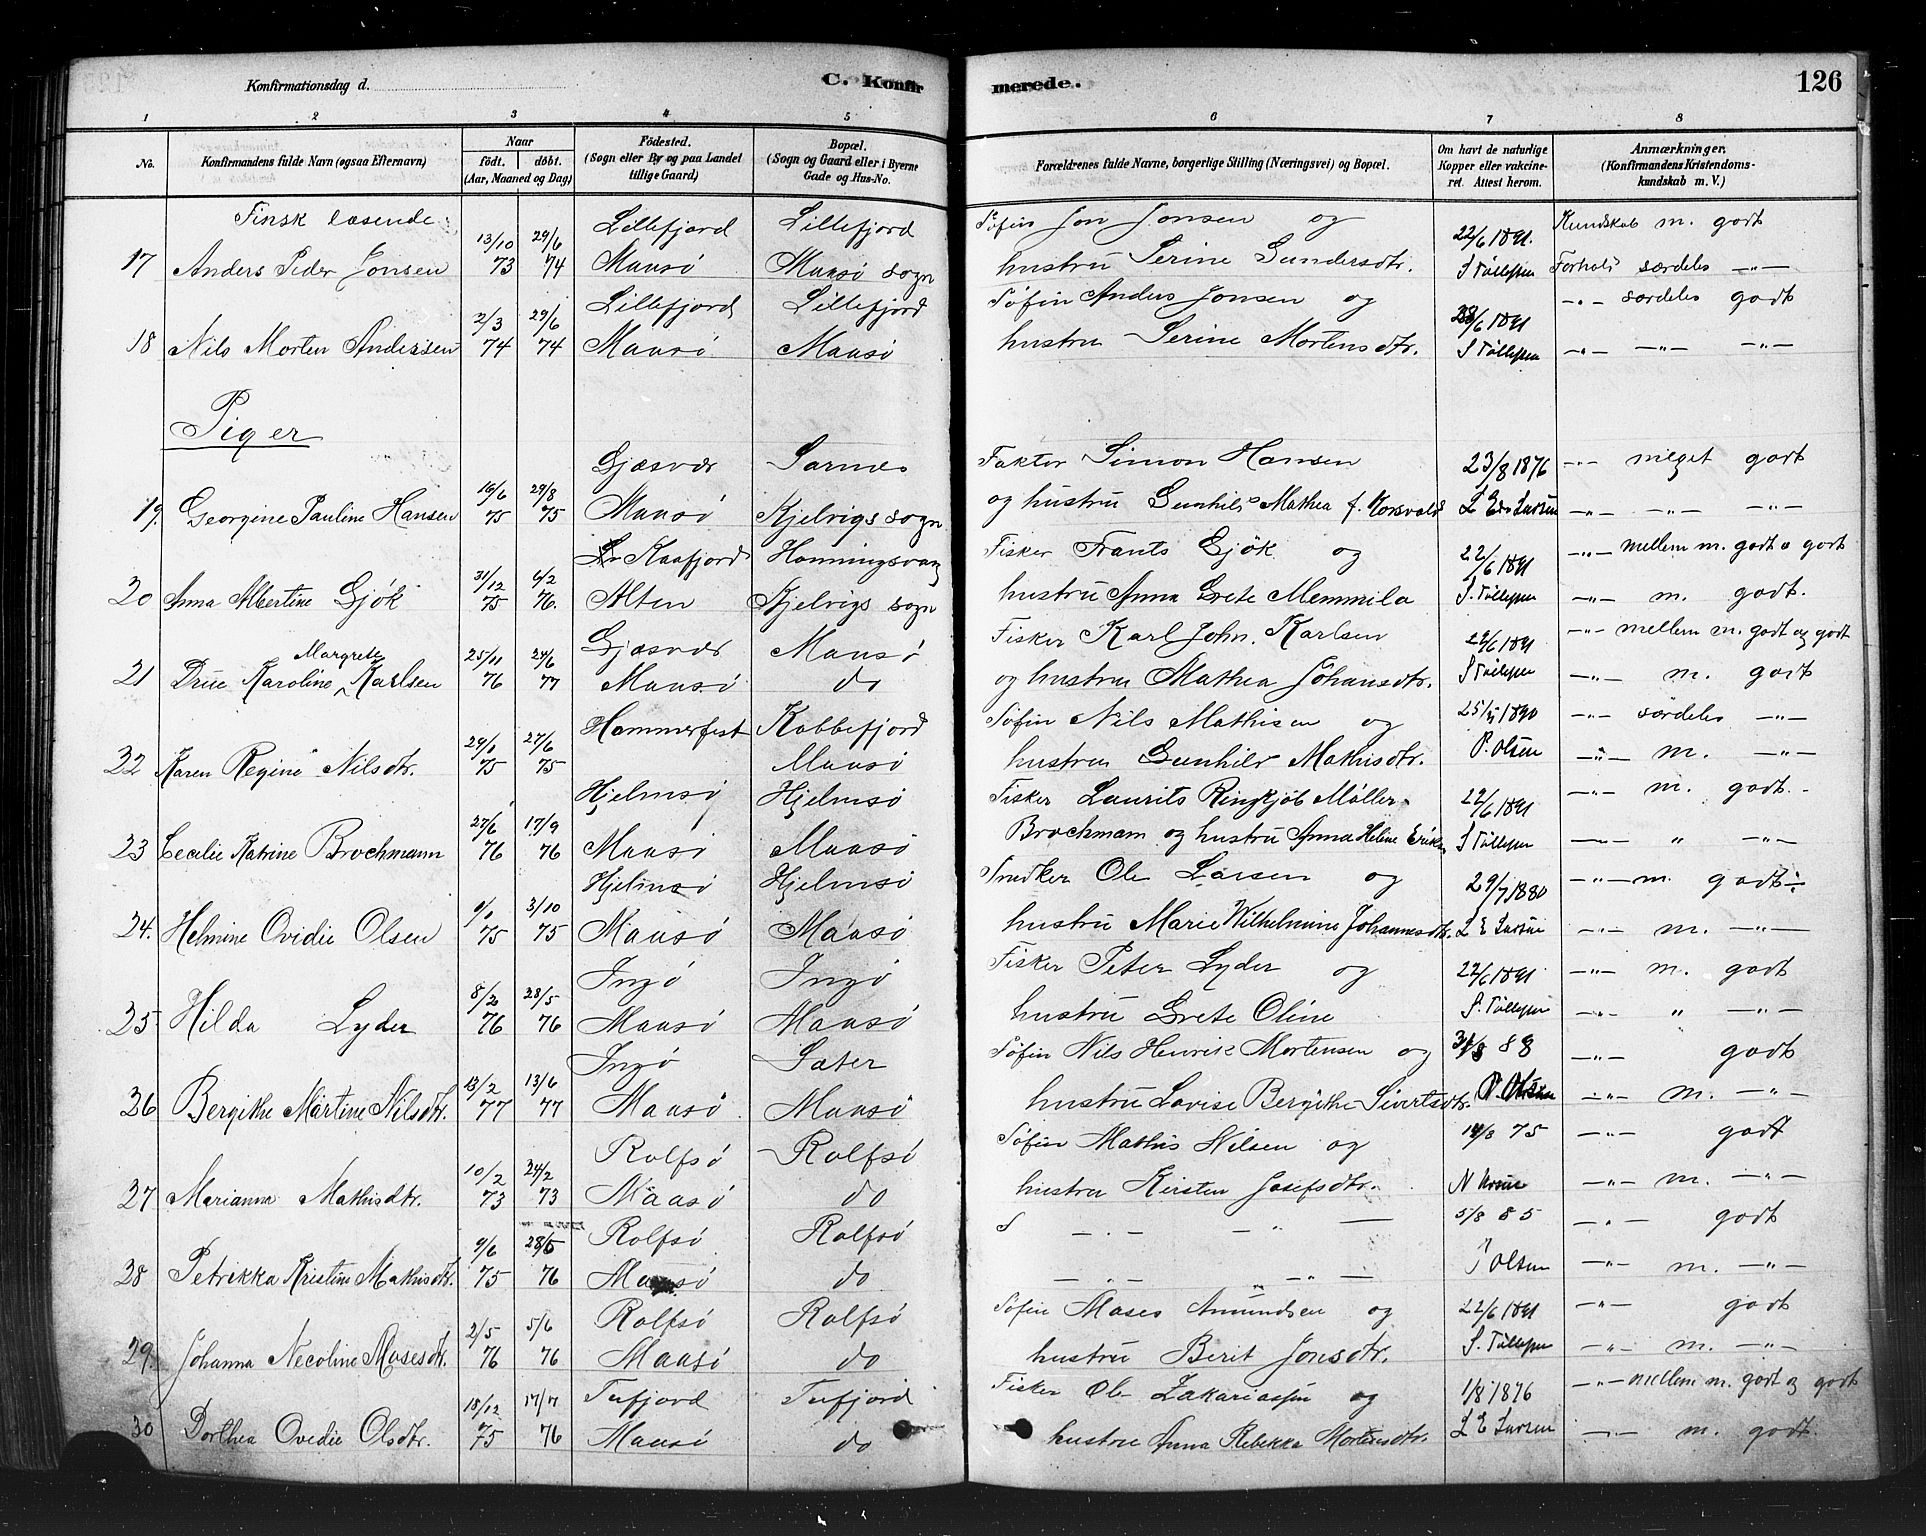 Konfirmationsdag d. C. Konfir merede. 126
1 2 3 4 5 6 7 8
No. Konfirmandens fulde Navn (ogsaa Efternavn) Naar født. døbt. (Aar, Maaned og Dag) Fødested. (Sogn eller By og paa Landet tillige Gaard) Bopæl. (Sogn og Gaard eller i Byerne Gade og Hus-No. Forældrenes fulde Navne, borgerlige Stilling (Næringsvei) og Bopæl. Om havt de naturlige Kopper eller vakcineret. Attest herom. Anmærkninger. (Konfirmandens Kristendomskundskab m. V.)
Finsk læsende 13/10 29/6 Lillefjord Lillefjord Søfin Jon Jonsen og 22/6 1891. Kundskab m. godt
17 Anders Peder Jonsen 73 74 Maasö Maasö sogn hustru Serine Gundersdtr. S Tollefsen Forhold særdeles -"-
2/3 29/6 Lillefjord Lillefjord Søfin Anders Jonsen og /6 1891 -"- særdeles godt
18 Nils Morten Andersen 74 74 Maasö Maasö hustru Serine Mortensdtr. S Tollefsen -"- -"- -"-
Piger
16/6 29/8 Gjæsvær Sarnes Faktor Simon Hansen 23/8 1876 -"- meget godt
19. Georgine Pauline Hansen 75 75 Maasö Kjelvigs sogn og hustru Gunhild Mathea f. L E Larsen -"- -"- -"-
31/12 6/2 Kaafjord Honningsvaag Fisker Frants Gjök og 22/6 1891 -"- mellem m. godt o godt
20 Anna Albertine Gjök 75 76. Alten Kjelvigs sogn hustru Anna Grete Memmila S. Tollefsen -"- m. godt.
Margrete 25/11 24/6 Gjæsvær Maasö Fisker Karl John. Karlsen 22/6 1891 -"- mellem m. godt og godt
21 Drue Karoline ^ Karlsen 76 77 Maasö do og hustru Mathea Johansdtr. S Tollefsen -"- m. godt
29/1 27/6 Hammerfest Kobbefjord Søfin Nils Mathisen og 25/ 1890 -"- særdeles -"-
22 Karen Regine Nilsdtr. 75 75 Maasö hustru Gunhild Mathisdtr. P. Olsen -"- m. -"-
27/6 17/9 Hjelmsö Hjelmsö Fisker Laurits Ringkjöb Möller 22/6 1891 -"- m. godt.
23 Cecilie Katrine Brochmann 76 76 Maasö Maasö Brochmann og hustru Anna Helene S Tollefsen -"- " -"-
1/1 3/10 Hjelmsö Hjelmsö Snedker Ole Larsen og 29/7 1880 -"- m. godt
24. Helmine Ovidie Olsen 75 75 Maasö Maasö hustru Marie Wilhelmine Johannesdtr. L E Larsen -"- m. -"-
8/2 28/5 Ingö Ingö Fisker Peter Lyder og 22/6 1891 -"- m. godt
25 Hilda Lyder 76 76 Maasö Maasö hustru Grete Oline S. Tollefsen -"- " -"-
13/2 13/6 Ingö Sæter Søfin Nils Henrik Mortensen og 88 -"- godt
26 Bergithe Martine Nilsdtr. 77 77 Maasö Maasö hustru Lovise Bergithe Sivertsdtr. P. Olsen -"- m. -"-
10/2 24/2 Rolfsö Rolfsö Søfin Mathis Nilsen og 14/8 75 -"- godt
27 Marianna Mathisdtr. 73 73 Maasö do hustru Kirsten Josefsdtr. N -"- m. -"-
9/6 28/5 Rolfsö Rolfsö S -"- -"- 5/8 85 -"- godt
28 Petrikka Kristine Mathisdtr. 75 76 Maasö do -"- -"- P Olsen -"- m. -"-
2/5 5/6 Rolfsö Rolfsö Søfin Moses Amundsen og 22/6 1891 -"- godt
29. Johanna Necoline Mosesdtr. 76 76 Maasö do hustru Berit Jonsdtr. S. Tollefsen -"- m. -"-
18/12 17/7 Tufjord Tufjord Fisker Ole Zakariassen og 1/8 1876 -"- mellem m. godt og godt
30 Dorthea Ovedie Olsdtr. 75 76 Maasö do hustru Anna Rebekka Mortensdtr. L E Larsen -"- m. godt.